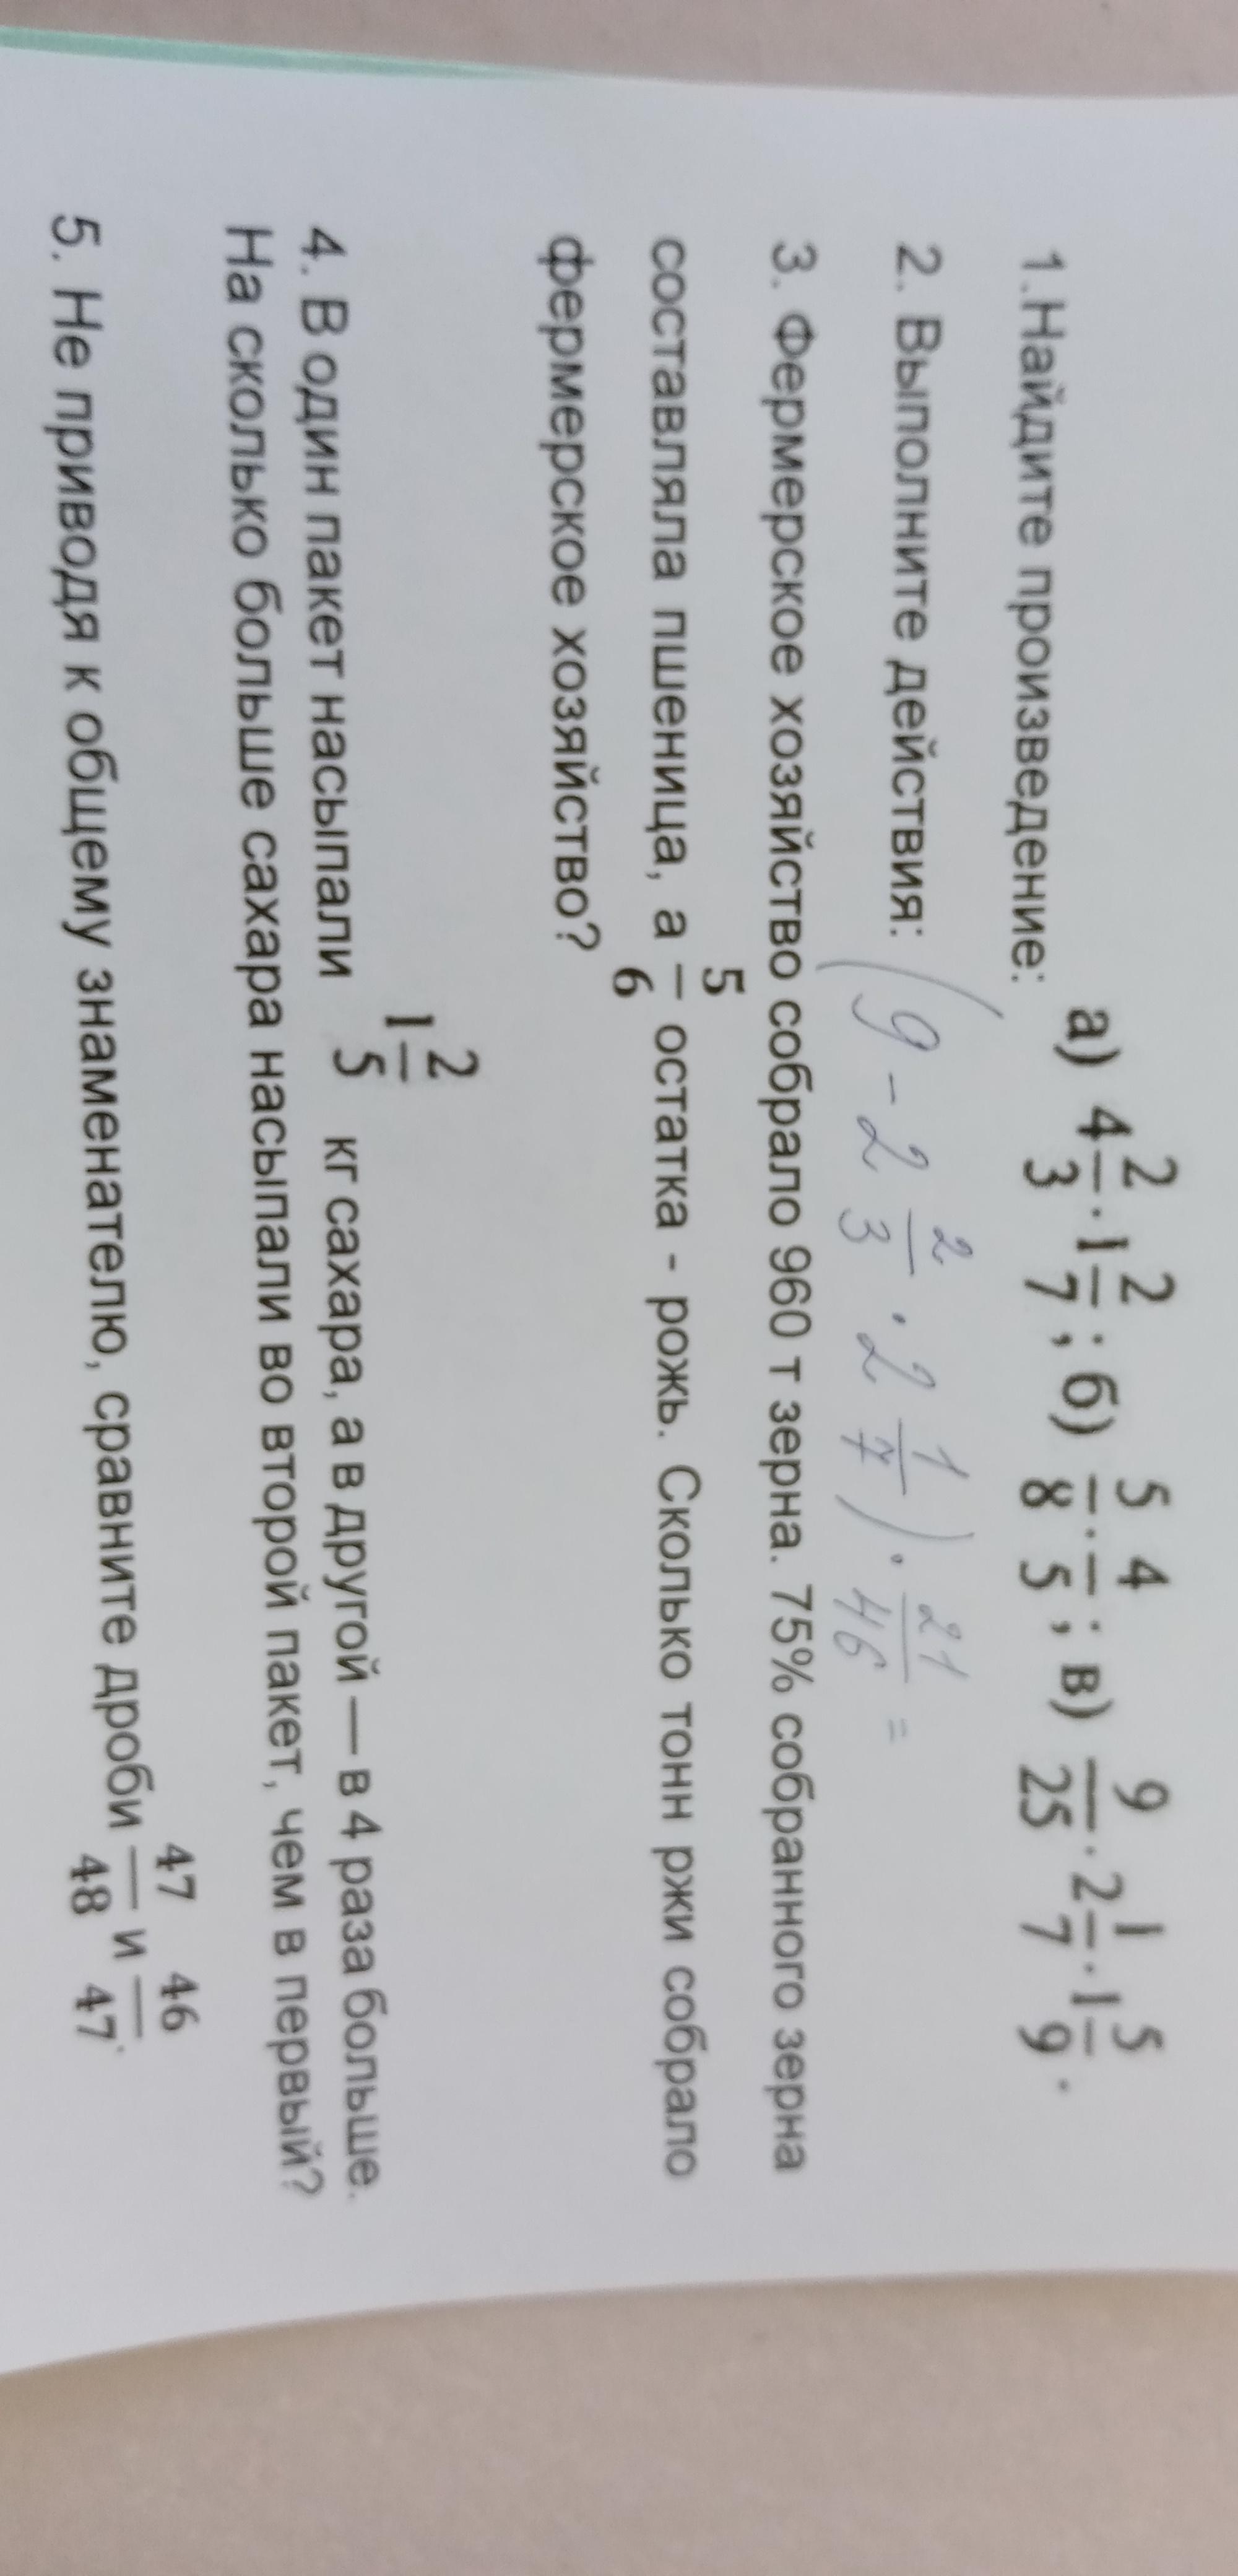 1.Найдите произведение: а) 4 2/3 · 1 2/7 ; б) 5/8 · 4/5 ; в) 9/25 · 2 1/7 · 1 5/9 .
2. Выполните действия: (9 - 2 2/3 · 2 1/7) · 21/46 =
3. Фермерское хозяйство собрало 960 т зерна. 75% собранного зерна
составляла пшеница, а 5/6 остатка - рожь. Сколько тонн ржи собрало
фермерское хозяйство?
4. В один пакет насыпали 1 2/5 кг сахара, а в другой — в 4 раза больше.
На сколько больше сахара насыпали во второй пакет, чем в первый?
5. Не приводя к общему знаменателю, сравните дроби 47/48 и 46/47.